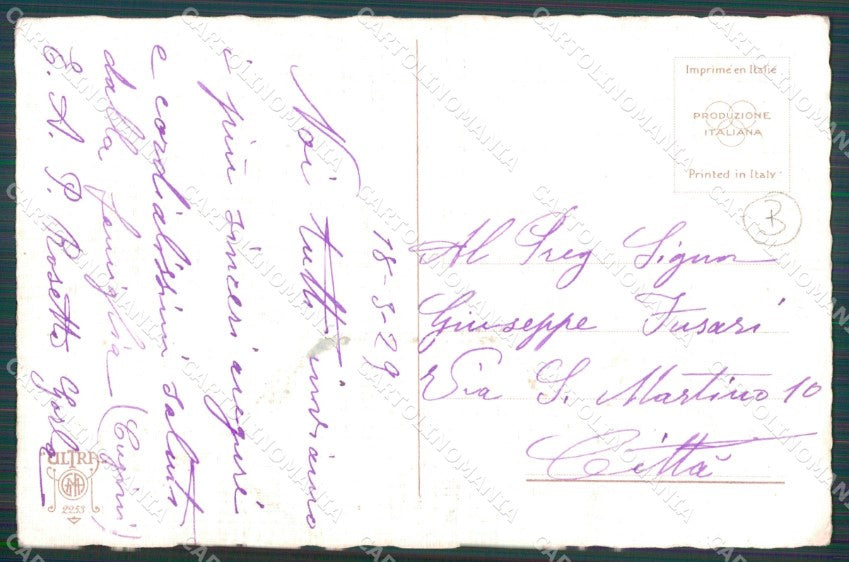 18-3-29
Noi tutti inviamo
i più sinceri auguri
e cordialissimi saluti
dalla famiglia
E. A. P. Rosetta
ULTRA
2253
Imprimé en Italie
PRODUZIONE
ITALIANA
Printed in Italy
B
Al Preg Signor
Giuseppe Fusari
Via S. Martino 10
Città
CARTOLINOMANIA